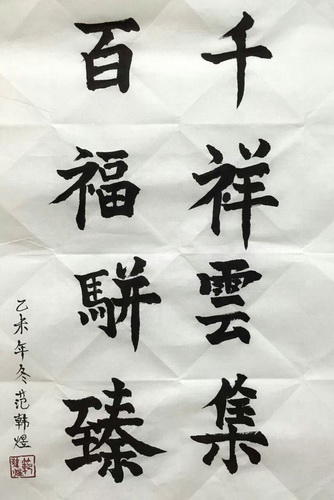 千祥雲集
百福駢臻
乙未年冬范韩煜